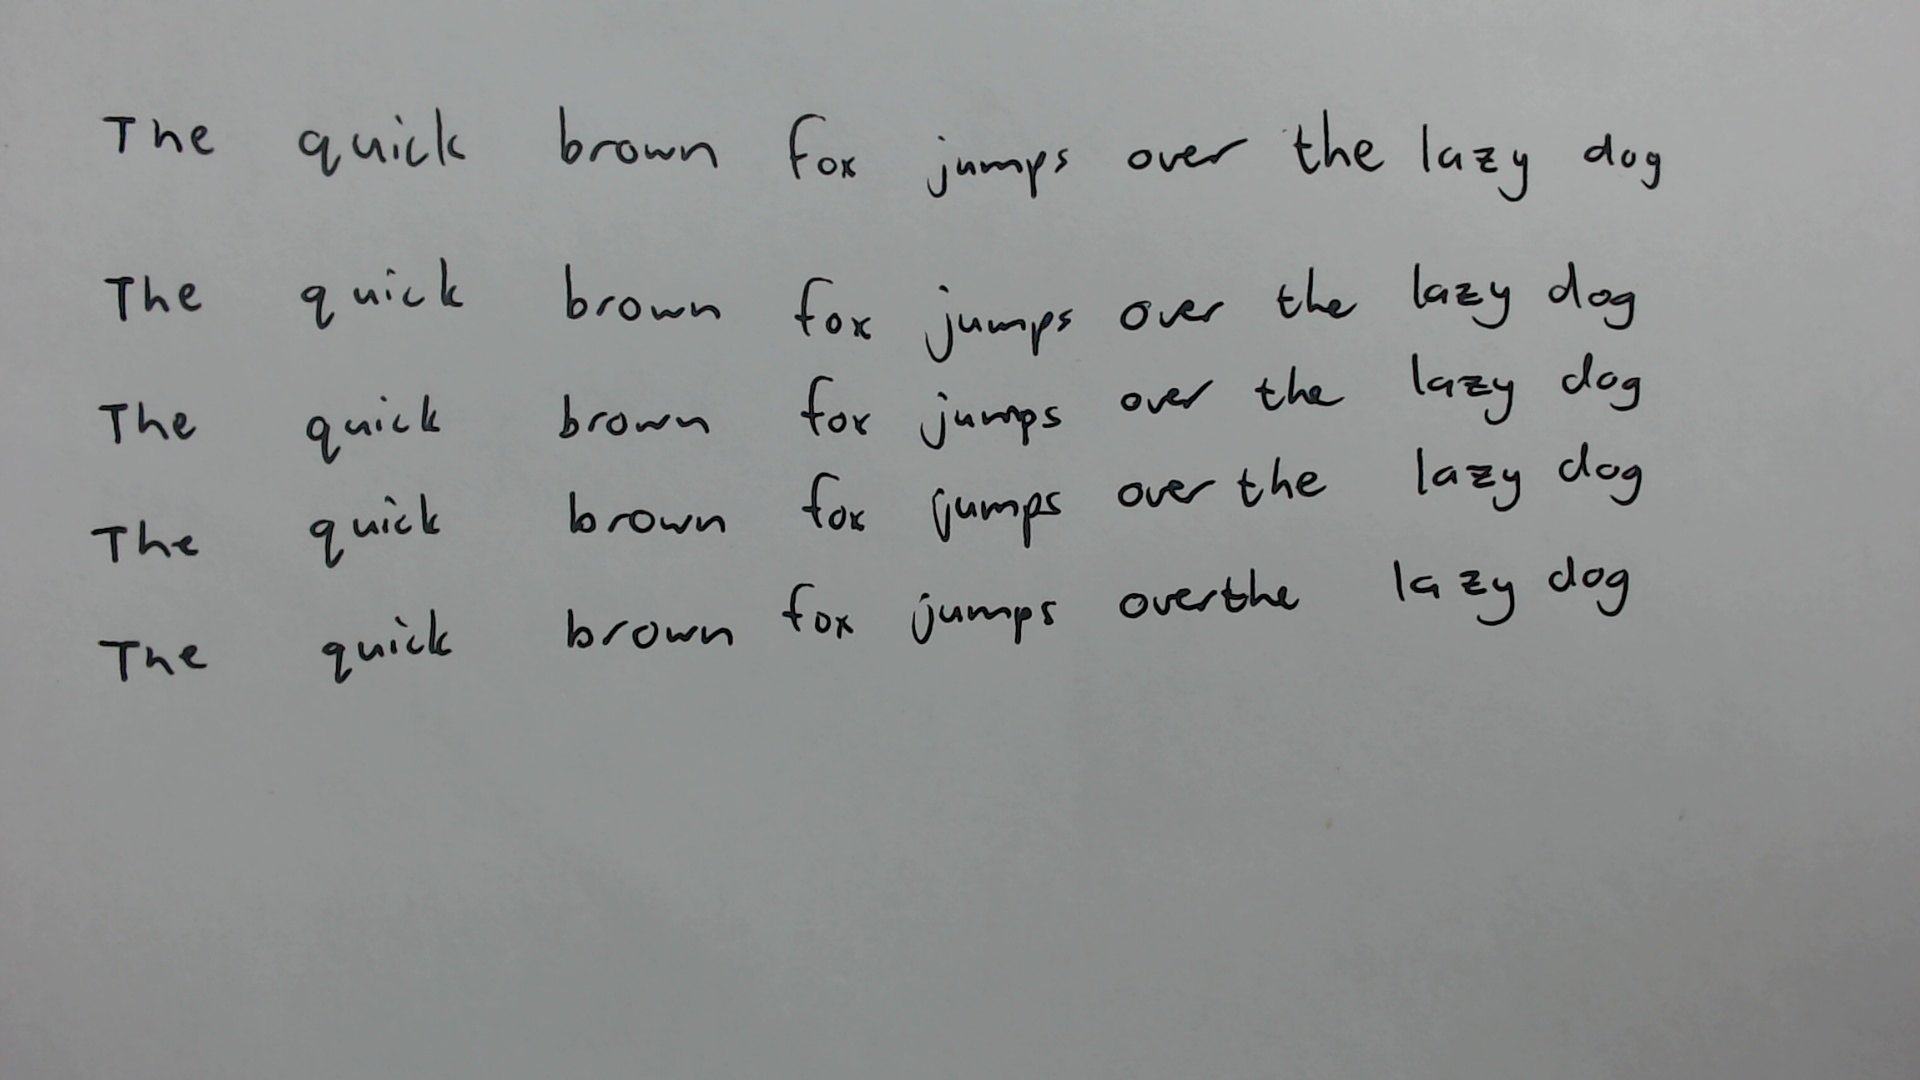 The quick brown fox jumps over the lazy dog
The quick brown fox jumps over the lazy dog
The quick brown fox jumps over the lazy dog
The quick brown fox jumps over the lazy dog
The quick brown fox jumps overthe lazy dog